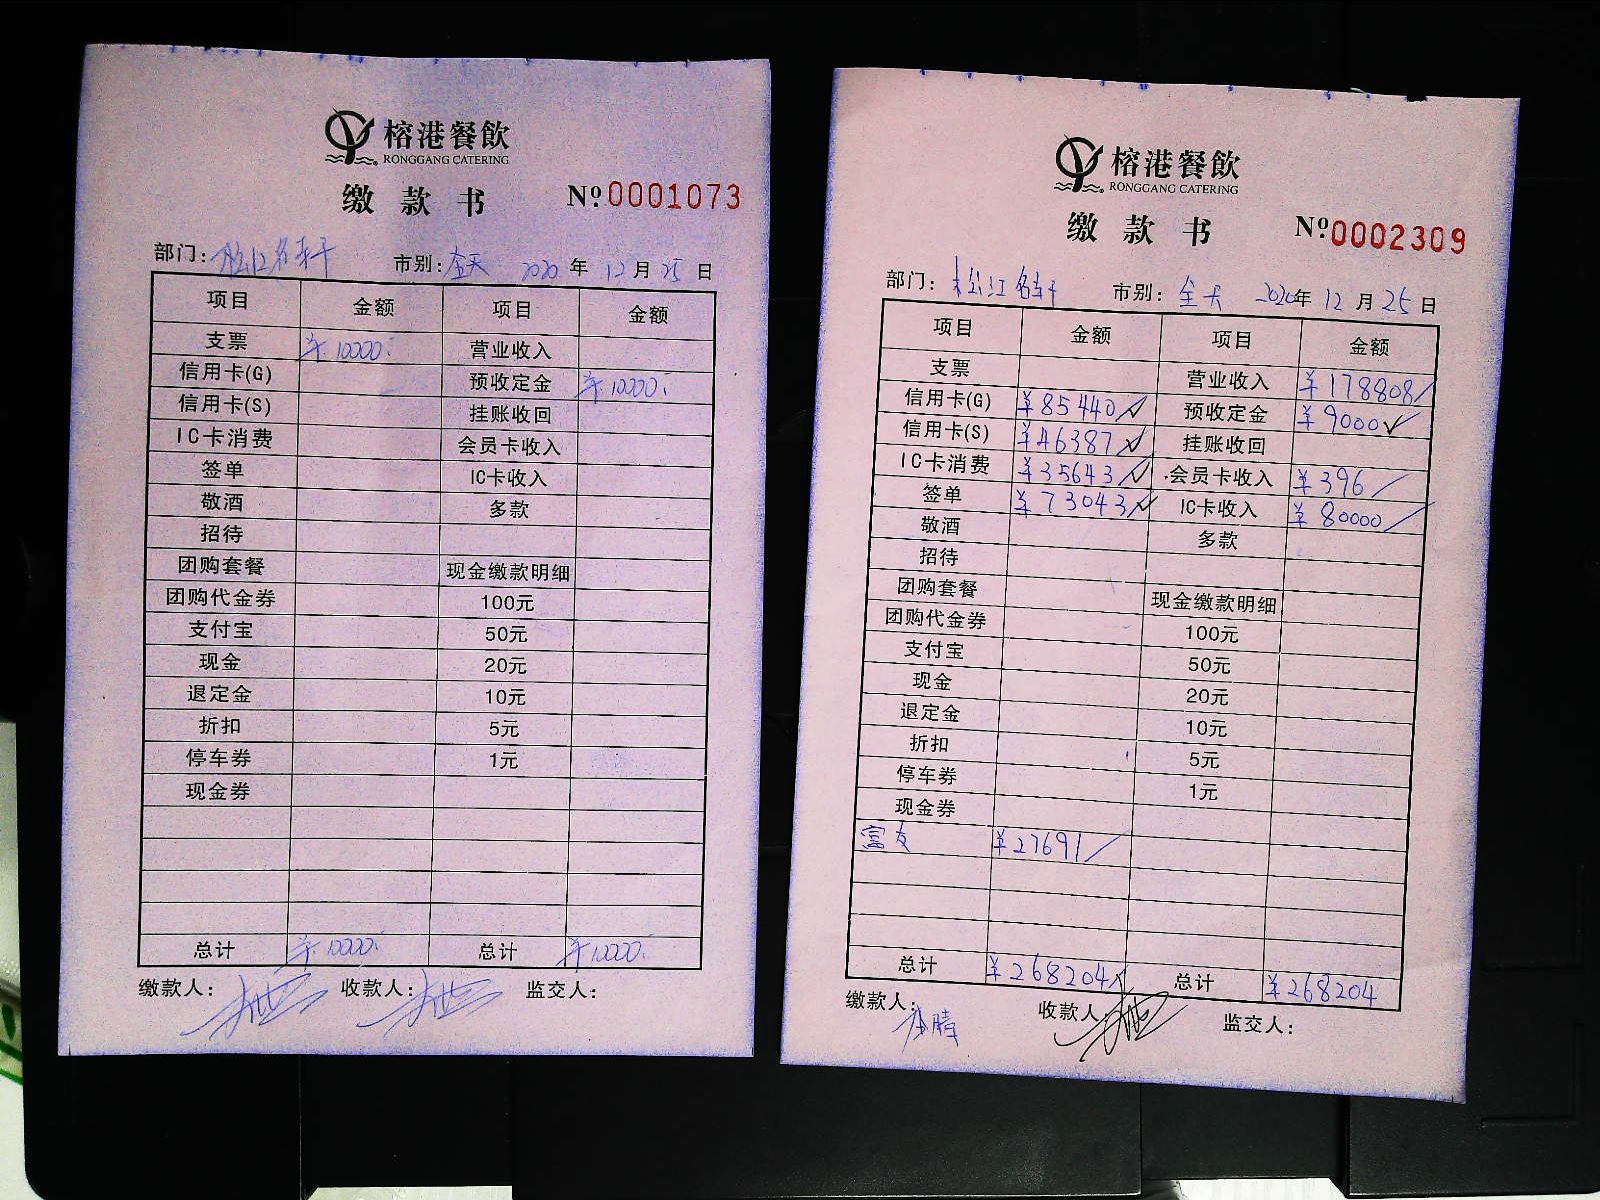 榕港餐飲
RONGGANG CATERING
缴款书 Nº0001073
部门:松江名轩 市别:全天 2020年12月25日
项目 金额 项目 金额
支票 ¥10000. 营业收入
信用卡(G) 预收定金 ¥10000.
信用卡(S) 挂账收回
IC卡消费 会员卡收入
签单 IC卡收入
敬酒 多款
招待
团购套餐 现金缴款明细
团购代金券 100元
支付宝 50元
现金 20元
退定金 10元
折扣 5元
停车券 1元
现金券
总计 ¥10000. 总计 ¥10000.
缴款人: 收款人: 监交人:
榕港餐飲
RONGGANG CATERING
缴款书 Nº0002309
部门:松江名轩 市别:全天 2020年12月25日
项目 金额 项目 金额
支票 营业收入 ¥178808
信用卡(G) ¥85440 预收定金 ¥9000
信用卡(S) ¥46387 挂账收回
IC卡消费 ¥35643 会员卡收入 ¥396
签单 ¥73043 IC卡收入 ¥80000
敬酒 多款
招待
团购套餐 现金缴款明细
团购代金券 100元
支付宝 50元
现金 20元
退定金 10元
折扣 5元
停车券 1元
现金券
富友 ¥27691
总计 ¥268204 总计 ¥268204
缴款人: 收款人: 监交人: